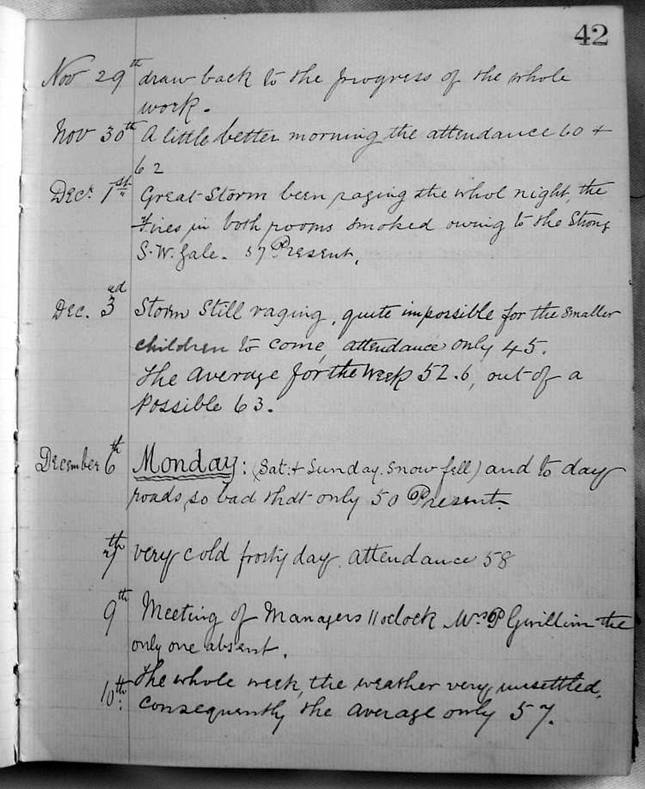 42
Nov 29th draw back to the progress of the whole
work.
Nov 30th A little better morning the attendance 60 +
62
Decr. 1st Great Storm been raging the whol night, the
Fires in both rooms smoked owing to the Strong
S.W. gale. 57 Present.
Dec. 3rd Storm Still raging, quite impossible for the smaller
children to come, attendance only 45.
The average for the week 52.6, out of a
Possible 63.
December 6th Monday: (Sat. + Sunday. Snow fell) and to day
roads so bad that only 50 Present.
7th very cold frosty day. attendance 58
9th Meeting of Managers 11 oclock Mrs P Gwillim the
only one absent.
10th: The whole week, the weather very unsettled,
consequently the average only 57.